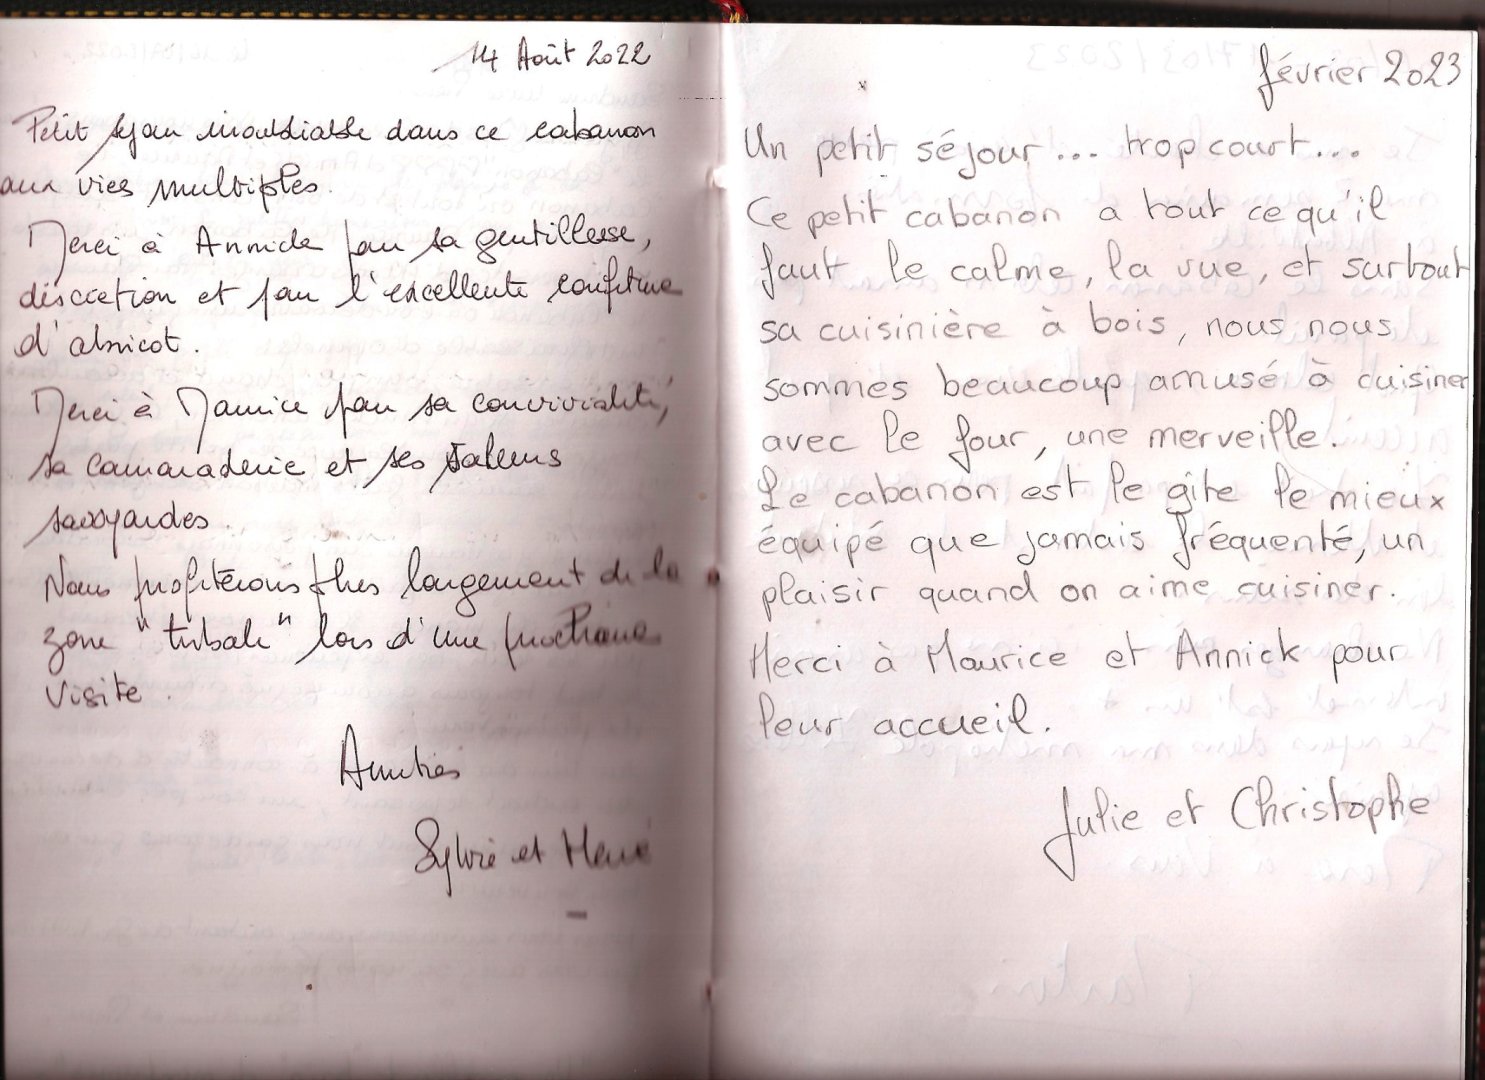 14 Août 2022
Petit séjour inoubliable dans ce cabanon
aux vies multiples.
Merci à Annick pour sa gentillesse,
discrétion et pour l'excellente confiture
d'abricot.
Merci à Maurice pour sa convivialité,
sa camaraderie et ses talents
savoyardes.
Nous profiterons plus longement de la
zone "tribale" lors d'une prochaine
visite.
Amitiés
Sylvie et Hervé
février 2023
Un petit séjour... trop court...
Ce petit cabanon a tout ce qu'il
faut le calme, la vue, et surtout
sa cuisinière à bois, nous nous
sommes beaucoup amusé à cuisiner
avec le four, une merveille.
Le cabanon est le gîte le mieux
équipé que jamais fréquenté, un
plaisir quand on aime cuisiner.
Merci à Maurice et Annick pour
leur accueil.
Julie et Christophe